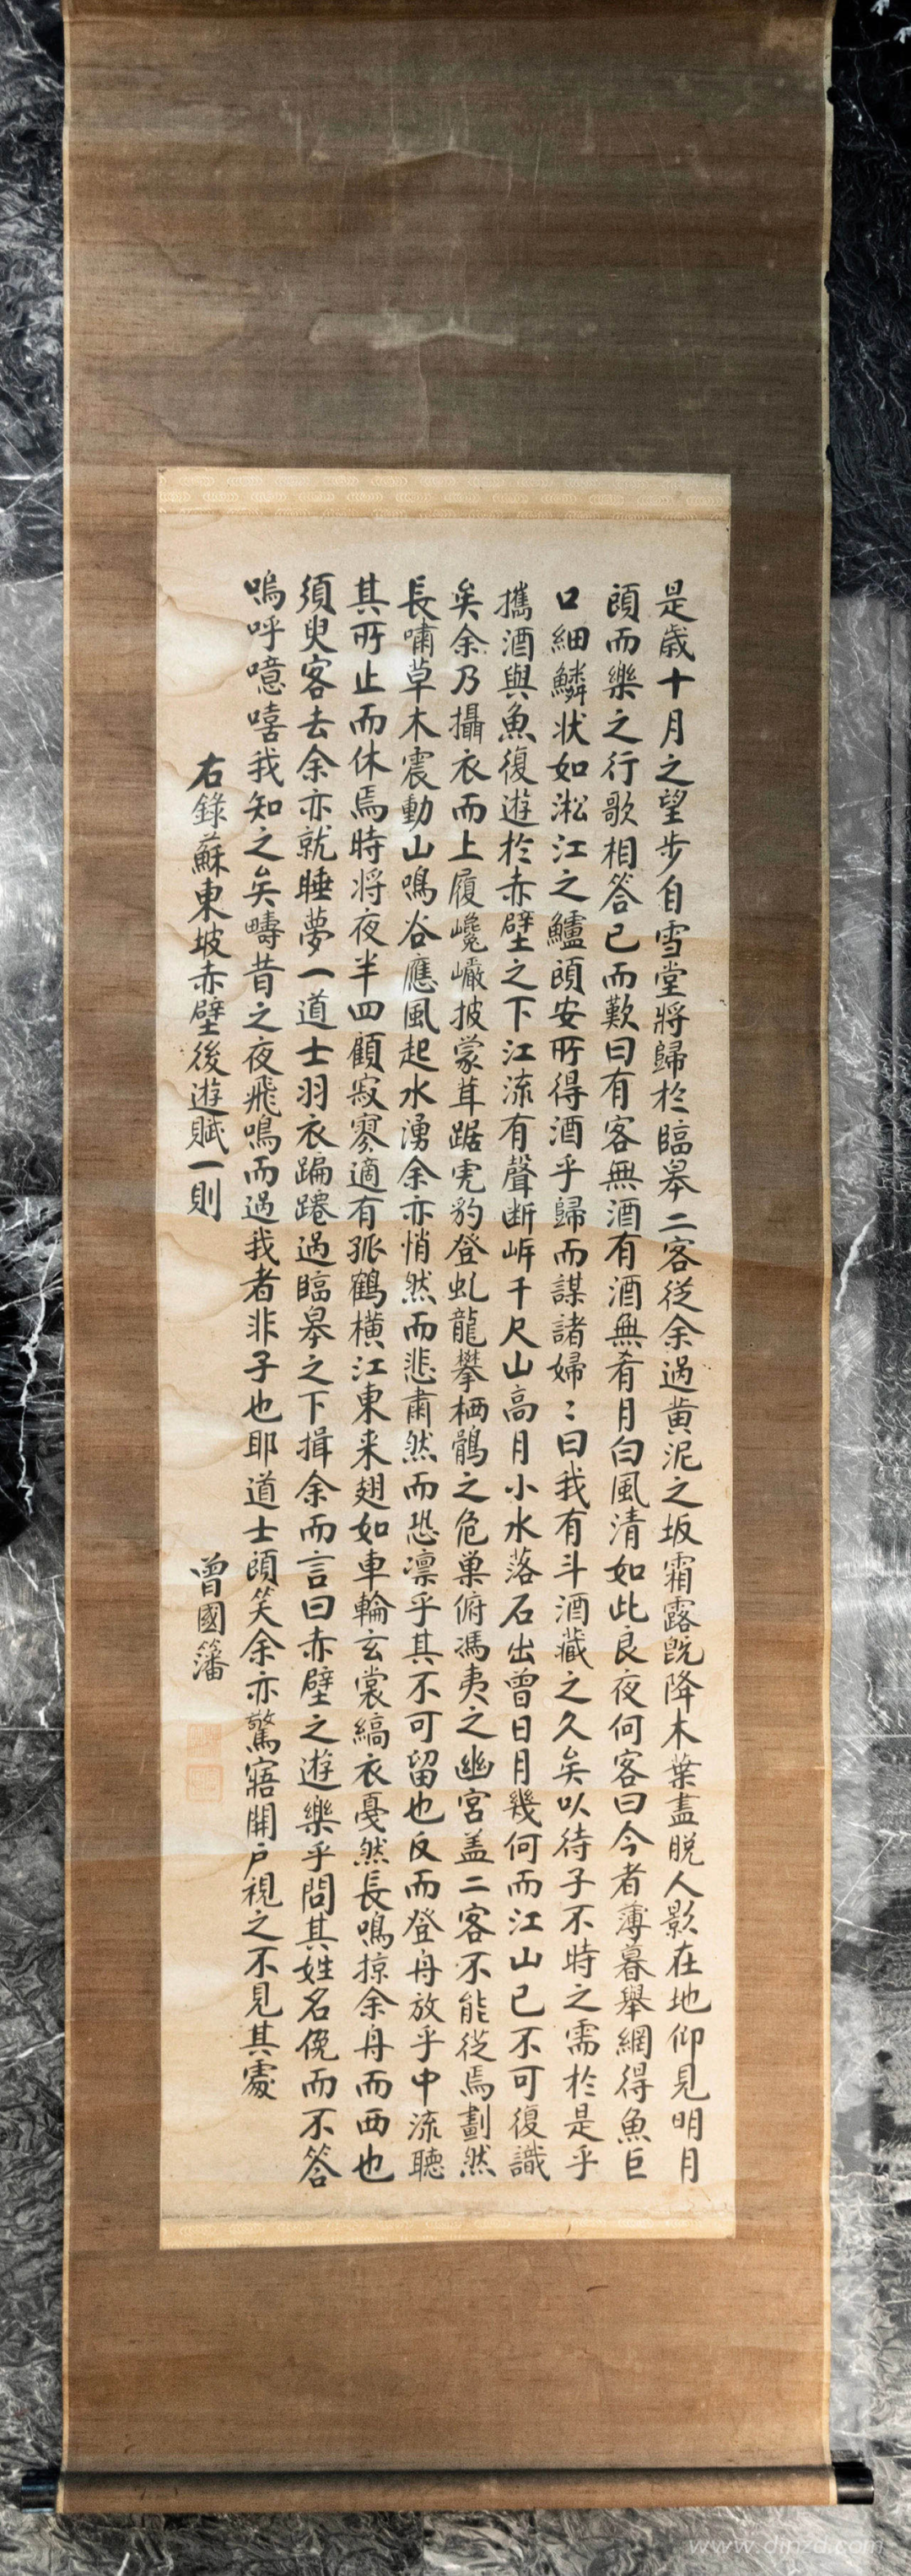 是歲十月之望步自雪堂將歸於臨皋二客從余過黃泥之坂霜露既降木葉盡脫人影在地仰見明月
頋而樂之行歌相答已而歎曰有客無酒有酒無肴月白風清如此良夜何客曰今者薄暮舉網得魚巨
口細鱗状如淞江之鱸頋安所得酒乎歸而謀諸婦〻曰我有斗酒藏之久矣以待子不時之需於是乎
攜酒與魚復遊於赤壁之下江流有聲断岸千尺山高月小水落石出曾日月幾何而江山已不可復識
矣余乃攝衣而上履巉巖披蒙茸踞虎豹登虬龍攀栖鶻之危巢俯馮夷之幽宮盖二客不能從焉劃然
長嘯草木震動山鳴谷應風起水湧余亦悄然而悲肅然而恐凛乎其不可留也反而登舟放乎中流聽
其所止而休焉時將夜半四顧寂寥適有孤鶴橫江東来翅如車輪玄裳縞衣戛然長鳴掠余舟而西也
須臾客去余亦就睡夢一道士羽衣蹁躚過臨皋之下揖余而言曰赤壁之遊樂乎問其姓名俛而不答
嗚呼噫嘻我知之矣疇昔之夜飛鳴而過我者非子也耶道士頋笑余亦驚寤開戶視之不見其處
右錄蘇東坡赤壁後遊賦一則
曾國籓
www.dinzd.com